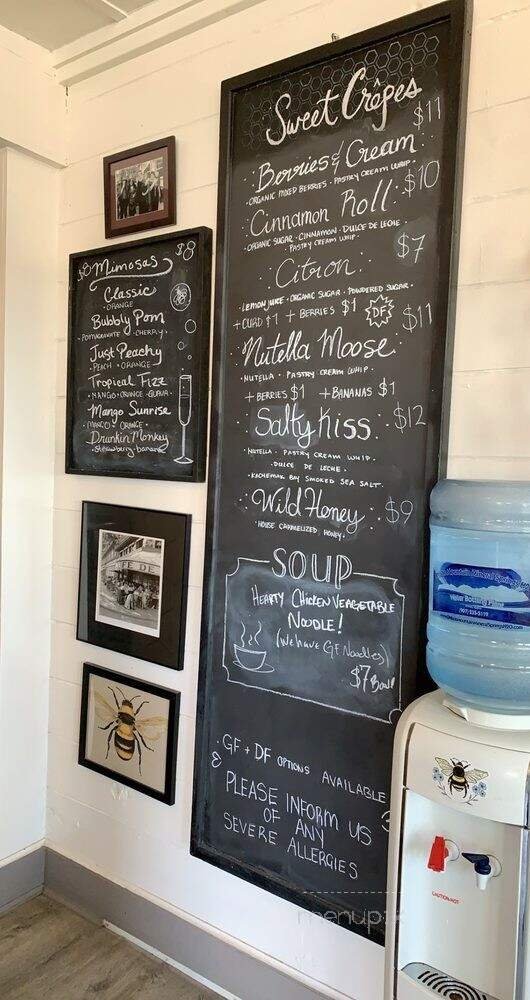 $8 Mimosas $8
Classic
· ORANGE
Bubbly Pom
· POMAGRANATE · CHERRY ·
Just Peachy
· PEACH · ORANGE ·
Tropical Fizz
· MANGO · ORANGE · GUAVA ·
Mango Sunrise
· MANGO · ORANGE ·
Drunkin Monkey
· strawberry · banana
Sweet Crêpes
$11
Berries & Cream
· ORGANIC MIXED BERRIES · PASTRY CREAM WHIP ·
Cinnamon Roll $10
· ORGANIC SUGAR · CINNAMON · DULCE DE LECHE ·
· PASTRY CREAM WHIP ·
Citron $7
· LEMON JUICE · ORGANIC SUGAR · POWDERED SUGAR ·
+ CURD $1 + BERRIES $1 DF
Nutella Moose $11
· NUTELLA · PASTRY CREAM WHIP ·
+ BERRIES $1 + BANANAS $1
Salty Kiss $12
· NUTELLA · PASTRY CREAM WHIP ·
· DULCE DE LECHE ·
· KACHEMAK BAY SMOKED SEA SALT ·
Wild Honey $9
· HOUSE CARAMELIZED HONEY ·
SOUP
HEARTY CHICKEN VEAGETABLE
NOODLE!
(We HAVE GF NOODLES)
$7 Bowl
· GF + DF OPTIONS AVAILABLE
&
PLEASE INFORM US
OF ANY
SEVERE ALLERGIES
Mountain Mineral Springs
Water Bottling Plant
CAUTION-HOT
menupix